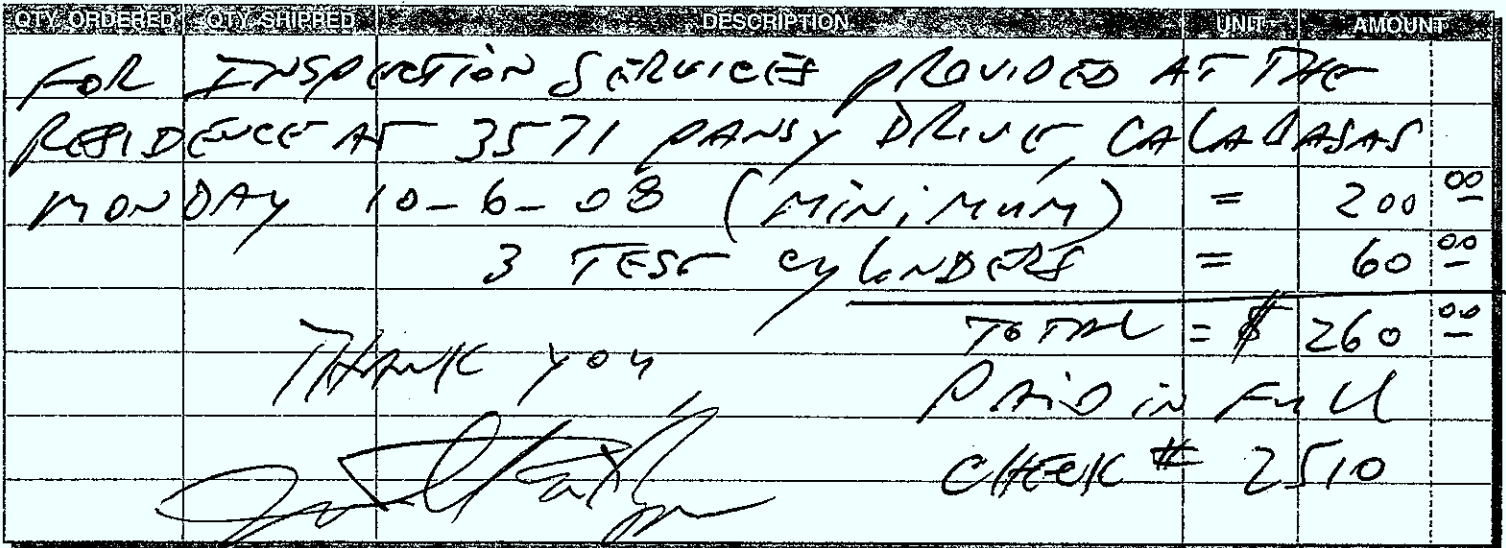 QTY. ORDERED QTY. SHIPPED DESCRIPTION UNIT AMOUNT
FOR INSPECTION SERVICES PROVIDED AT THE
RESIDENCE AT 3571 PANSY DRIVE, CALABASAS
MONDAY 10-6-08 (MINIMUM) = 200 00
3 TEST CYLINDERS = 60 00
TOTAL = $ 260 00
THANK YOU,
PAID IN FULL
CHECK # 2510